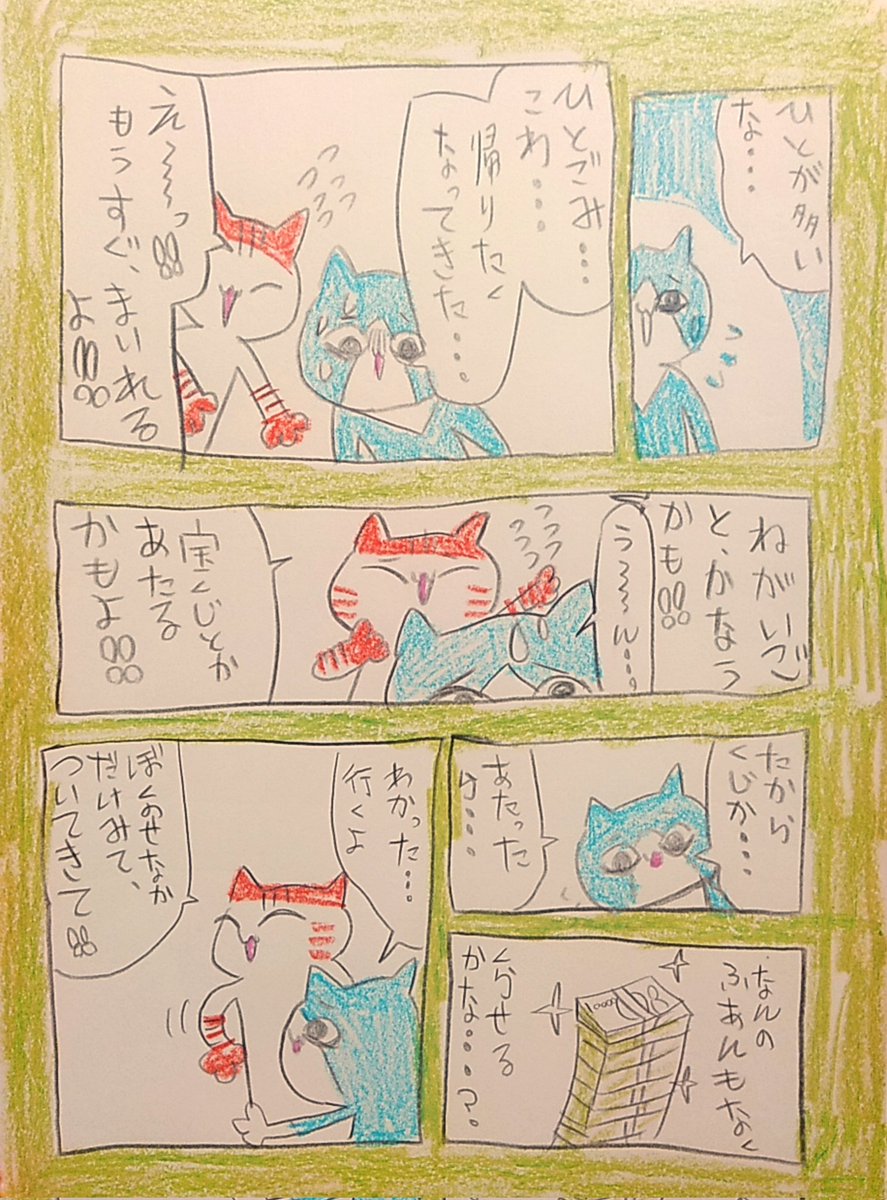 ひとが多い
な・・・
ひとごみ・・・
こわ・・・・
帰りたく
なってきた・・・・
え〜〜〜っ!!
もうすぐ、まいれる
よ!!!
ねがいご
と、かなう
かも!!
う〜〜〜ん・・・
宝くじとか
あたる
かもよ!!!
たから
くじか・・・・
あたった
ら・・・
なんの
ふあんもなく
くらせる
かな・・・・?
わかった・・・
行くよ
ぼくのせなか
だけみて、
ついてきて!!